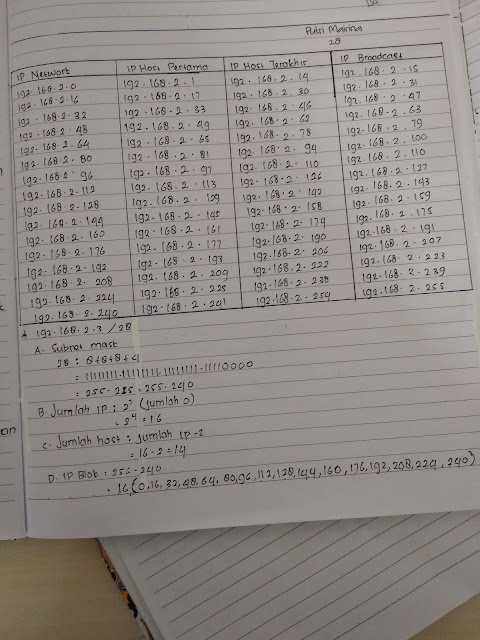 Putri Marina
28
IP Network | IP Host Pertama | IP Host Terakhir | IP Broadcast
192.168.2.0 | 192.168.2.1 | 192.168.2.14 | 192.168.2.15
192.168.2.16 | 192.168.2.17 | 192.168.2.30 | 192.168.2.31
192.168.2.32 | 192.168.2.33 | 192.168.2.46 | 192.168.2.47
192.168.2.48 | 192.168.2.49 | 192.168.2.62 | 192.168.2.63
192.168.2.64 | 192.168.2.65 | 192.168.2.78 | 192.168.2.79
192.168.2.80 | 192.168.2.81 | 192.168.2.94 | 192.168.2.100
192.168.2.96 | 192.168.2.97 | 192.168.2.110 | 192.168.2.110
192.168.2.112 | 192.168.2.113 | 192.168.2.126 | 192.168.2.127
192.168.2.128 | 192.168.2.129 | 192.168.2.142 | 192.168.2.143
192.168.2.144 | 192.168.2.145 | 192.168.2.158 | 192.168.2.159
192.168.2.160 | 192.168.2.161 | 192.168.2.174 | 192.168.2.175
192.168.2.176 | 192.168.2.177 | 192.168.2.190 | 192.168.2.191
192.168.2.192 | 192.168.2.193 | 192.168.2.206 | 192.168.2.207
192.168.2.208 | 192.168.2.209 | 192.168.2.222 | 192.168.2.223
192.168.2.224 | 192.168.2.225 | 192.168.2.238 | 192.168.2.239
192.168.2.240 | 192.168.2.241 | 192.168.2.254 | 192.168.2.255
192.168.2.3 / 28
A. Subnet mask
28 : 8+8+8+4
= 11111111.11111111.11111111.11110000
= 255.255.255.240
B. Jumlah IP : 2^n (jumlah 0)
= 2^4 = 16
C. Jumlah host : Jumlah IP-2
= 16-2 = 14
D. IP Blok : 256-240
= 16 (0,16,32,48,64,80,96,112,128,144,160,176,192,208,224,240)